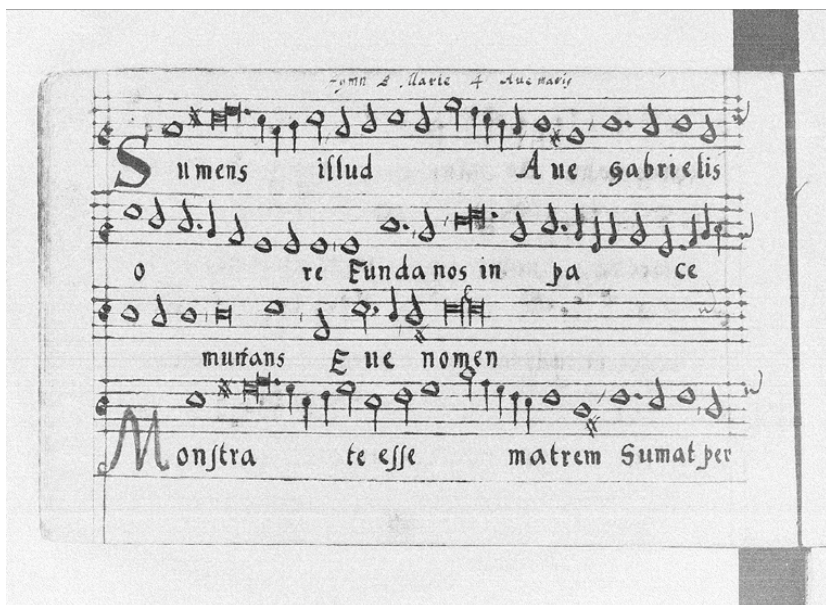 Hymn B Marie 4 Ave maris
Sumens illud Aue gabrielis
o re Funda nos in pa ce
mutans Eue nomen
Monstra te esse matrem Sumat per